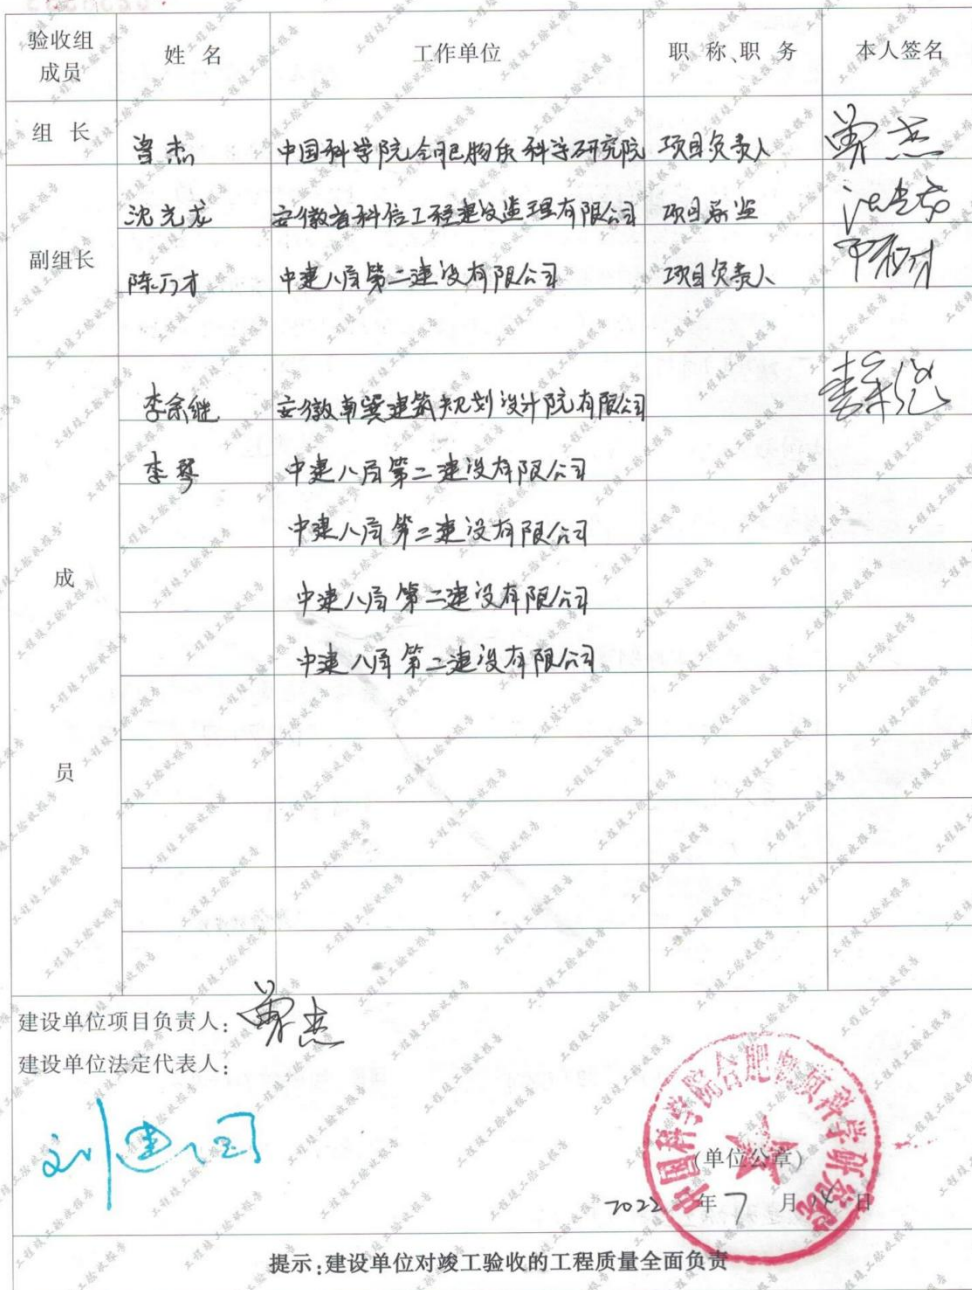 验收组成员 姓 名 工作单位 职 称、职 务 本人签名
组 长 曾杰 中国科学院合肥物质科学研究院 项目负责人 曾杰
副组长
安徽省科信工程建设监理有限公司 项目总监
陈万才 中建八局第二建设有限公司 项目负责人
成员
李余继 安徽南巽建筑规划设计院有限公司
李琴 中建八局第二建设有限公司
中建八局第二建设有限公司
中建八局第二建设有限公司
中建八局第二建设有限公司
建设单位项目负责人: 曾杰
建设单位法定代表人:
刘建国
中国科学院合肥物质科学研究院
(单位公章)
2022年7月 日
提示:建设单位对竣工验收的工程质量全面负责
工程竣工验收报告